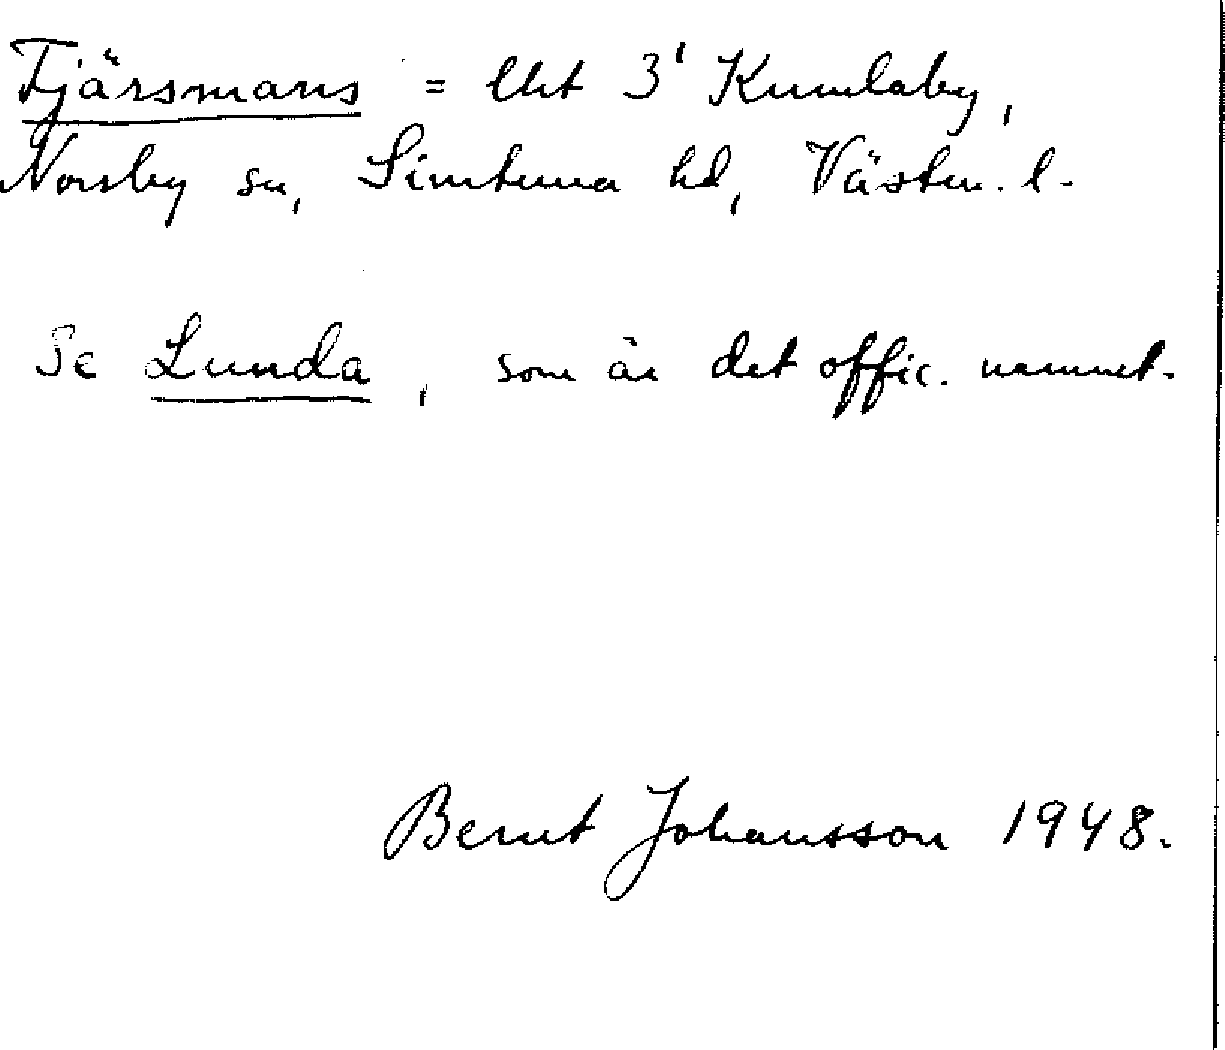 Tjärsmans = Utet 3¹ Kumlaby,
Norrby sn, Simtuna hd, Västm. l.
Se Lunda, som är det offic. namnet.
Bernt Johansson 1948.